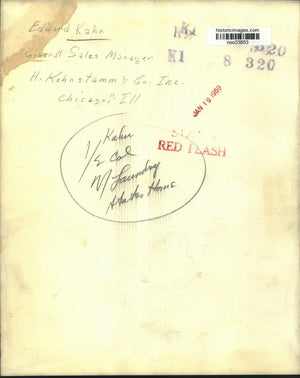 historicimages.com
neo33853
Edward Kahn
General Sales Manager
H. Kohnstamm & Co. Inc.
Chicago, Ill
K1
K1
8 320
JAN 19 1959
RED FLASH
Kahn
1/2 Col
W/ Laundry